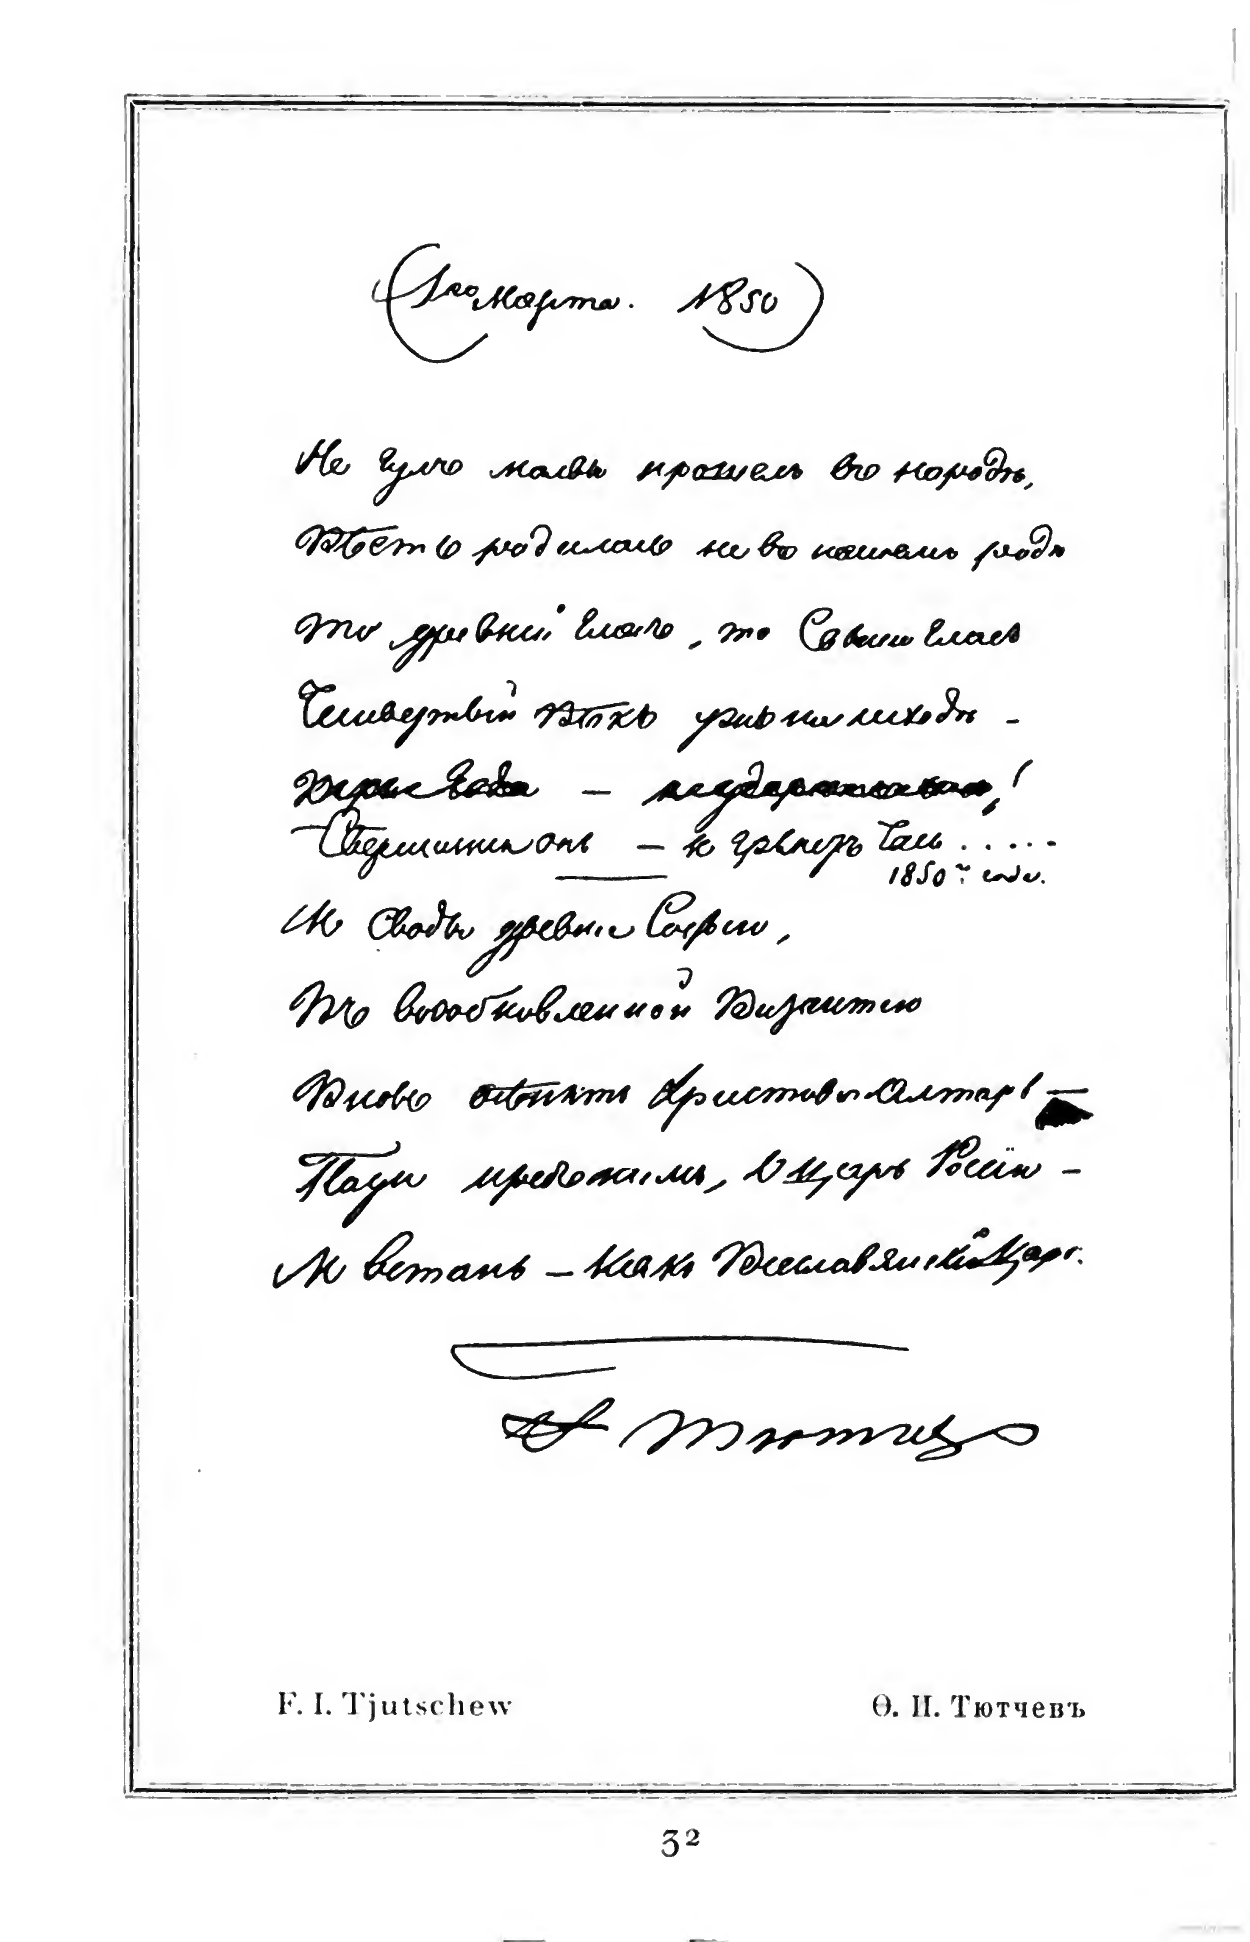 (1го Марта. 1850)
Не гулъ молвы прошелъ въ народѣ,
Вѣсть родилась не въ нашемъ родѣ
То древній гласъ, то Свыше гласъ
Четвертый Вѣкъ ужъ на исходѣ –
Свершится онъ – и грянетъ Часъ . . . . .
1850го года.
И Своды древніе Софіи,
Въ возобновленной Византіи
Вновь осѣнятъ Христовъ Олтарь –
Пади предъ нимъ, о Царь Россіи –
И встань – какъ Всеславянскій Царь.
Ѳ. Тютчевъ
F. I. Tjutschew
Ѳ. И. Тютчевъ
32